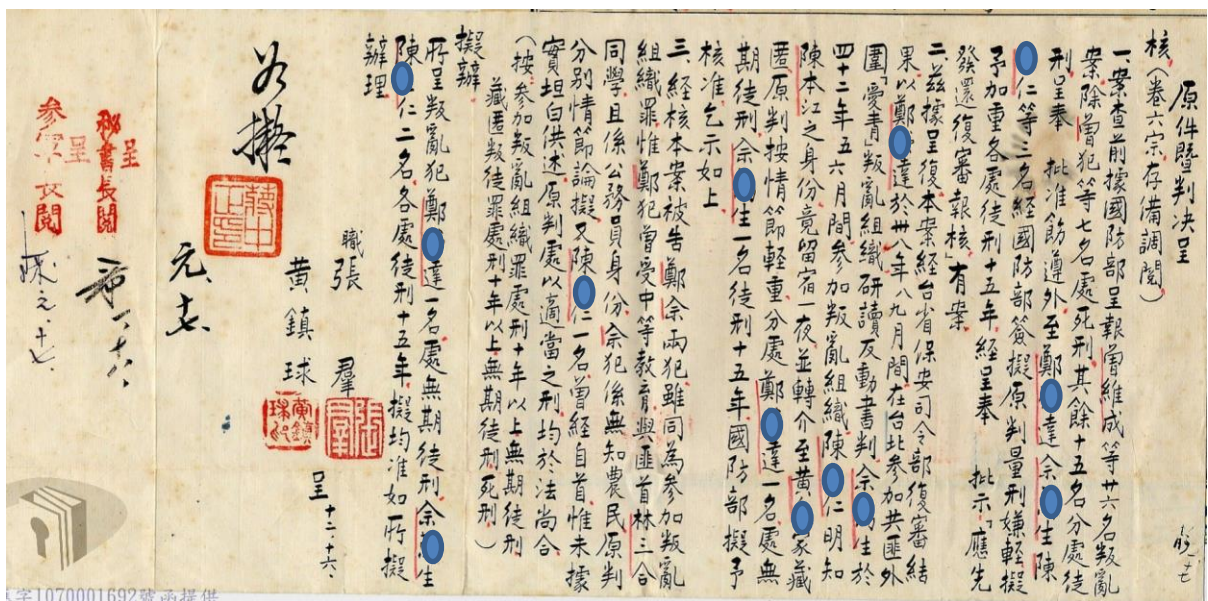 原件暨判決呈
核(卷六宗存備調閱)
一、案查前據國防部呈報曾維成等廿六名叛亂
案除曾犯等七名處死刑其餘十五名分處徒
刑呈奉 批准飭遵外至鄭達余生陳
仁等三名經國防部簽擬原判量刑嫌輕擬
予加重各處徒刑十五年經呈奉 批示「應先
發還復審報核」有案
二、茲據呈復本案經台省保安司令部復審結
果以鄭達於卅八年八九月間在台北參加共匪外
圍「愛青」叛亂組織研讀反動書判余生於
四十二年五六月間參加叛亂組織陳仁明知
陳本江之身份竟留宿一夜並轉介至黃家藏
匿原判按情節輕重分處鄭達一名處無
期徒刑余生一名徒刑十五年國防部擬予
核准乞示如上
三、經核本案被告鄭余兩犯雖同為參加叛亂
組織罪惟鄭犯曾受中等教育與匪首林三合
同學且係公務員身份余犯係無知農民原判
分別情節論擬又陳仁一名曾經自首惟未據
實坦白供述原判處以適當之刑均於法尚合
(按:參加叛亂組織罪處刑十年以上無期徒刑
藏匿叛徒罪處刑十年以上無期徒刑死刑)
擬辦
所呈叛亂犯鄭達一名處無期徒刑余生
陳仁二名各處徒刑十五年擬均准如所擬
辦理
職張羣
黃鎮球
呈 十二、十六、
張羣
黃鎮球印
如擬
蔣中正印
元、七
呈
秘書長閱
呈
參軍長閱
字1070001692號函提供